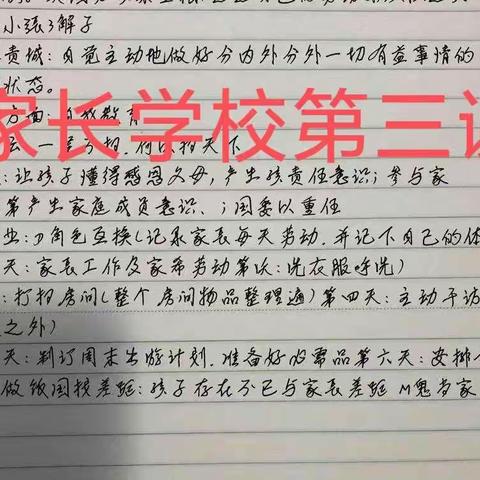 小强了解子
责城：自觉主动地做好分内外分外一切有益事情的
状态。
家长学校第三
一屋不扫，何以扫天下
：让孩子懂得感恩父母，产生孩责任意识；参与家
第产生家庭成员意识、；国委以重任
业：角色互换(记录家长每天劳动，并记下自己的体
天：家长工作及家希劳动第次：洗衣服 洗)
：打扫房间(整个房间物品整理遍)第四天：主动干访
之外)
天：制订周末出游计划，准备好必需品第六天：安排
做饭国换差距：孩子存在不已与家长差距 当家